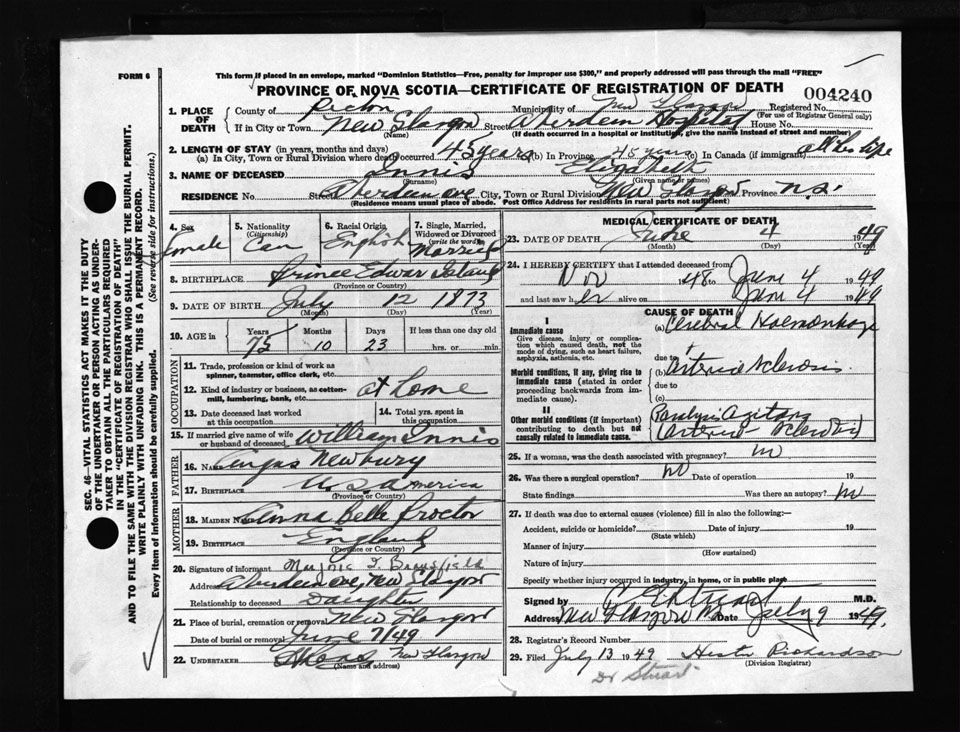 FORM 6
This form if placed in an envelope, marked "Dominion Statistics—Free, penalty for improper use $300," and properly addressed will pass through the mail "FREE"
PROVINCE OF NOVA SCOTIA—CERTIFICATE OF REGISTRATION OF DEATH
004240
1. PLACE OF DEATH
County of Pictou Municipality of New Glasgow Registered No.
(For use of Registrar General only)
If in City or Town New Glasgow Street Aberdeen Hospital House No.
(Name) (If death occurred in a hospital or institution, give the name instead of street and number)
2. LENGTH OF STAY (in years, months and days)
(a) In City, Town or Rural Division where death occurred 45 years (b) In Province 45 years (c) In Canada (if immigrant) all her life
3. NAME OF DECEASED Innis Elizabeth
(Surname) (Given name or names)
RESIDENCE No. Street Aberdeen ave City, Town or Rural Division New Glasgow Province N.S.
(Residence means usual place of abode. Post Office Address for residents in rural parts not sufficient)
4. Sex female
5. Nationality (Citizenship) Can
6. Racial Origin English
7. Single, Married, Widowed or Divorced (write the word) Married
8. BIRTHPLACE Prince Edward Island
(Province or Country)
9. DATE OF BIRTH July 12 1873
(Month) (Day) (Year)
10. AGE in Years 75 Months 10 Days 23 If less than one day old hrs. or min.
OCCUPATION
11. Trade, profession or kind of work as spinner, teamster, office clerk, etc.
12. Kind of industry or business, as cotton-mill, lumbering, bank, etc. at home
13. Date deceased last worked at this occupation
14. Total yrs. spent in this occupation
15. If married give name of wife or husband of deceased William Innis
FATHER
16. Name Angas Newbury
17. Birthplace U S America
(Province or Country)
MOTHER
18. Maiden Name Anna Belle Proctor
19. Birthplace England
(Province or Country)
20. Signature of informant Marjorie
Address Aberdeen ave, New Glasgow
Relationship to deceased Daughter
21. Place of burial, cremation or removal New Glasgow
Date of burial or removal June 7/49
22. UNDERTAKER New Glasgow
(Name and address)
MEDICAL CERTIFICATE OF DEATH
23. DATE OF DEATH June 4 1949
(Month) (Day) (Year)
24. I HEREBY CERTIFY that I attended deceased from
Nov 1948 to June 4 1949
and last saw her alive on June 4 1949
CAUSE OF DEATH
I
Immediate cause
Give disease, injury or complication which caused death, not the mode of dying, such as heart failure, asphyxia, asthenia, etc.
(a) Cerebral Haemorrhage
due to
Morbid conditions, if any, giving rise to immediate cause (stated in order proceeding backwards from immediate cause).
(b) Arteriosclerosis
due to
(c)
II
Other morbid conditions (if important) contributing to death but not causally related to immediate cause.
Paralysis Agitans
(Arterio Sclerotic)
25. If a woman, was the death associated with pregnancy? no
26. Was there a surgical operation? no Date of operation 19
State findings Was there an autopsy? no
27. If death was due to external causes (violence) fill in also the following:—
Accident, suicide or homicide? Date of injury 19
(State which)
Manner of injury
(How sustained)
Nature of injury
Specify whether injury occurred in industry, in home, or in public place
Signed by Stuart M.D.
Address New Glasgow Date July 9 1949.
28. Registrar's Record Number
29. Filed July 13 1949 Hester Richardson
(Division Registrar)
Dr Stuart
SEC. 46—VITAL STATISTICS ACT MAKES IT THE DUTY
OF THE UNDERTAKER OR PERSON ACTING AS UNDER-
TAKER TO OBTAIN ALL THE PARTICULARS REQUIRED
IN THE "CERTIFICATE OF REGISTRATION OF DEATH"
AND TO FILE THE SAME WITH THE DIVISION REGISTRAR WHO SHALL ISSUE THE BURIAL PERMIT.
WRITE PLAINLY WITH UNFADING INK. THIS IS A PERMANENT RECORD.
Every item of information should be carefully supplied. (See reverse side for instructions.)